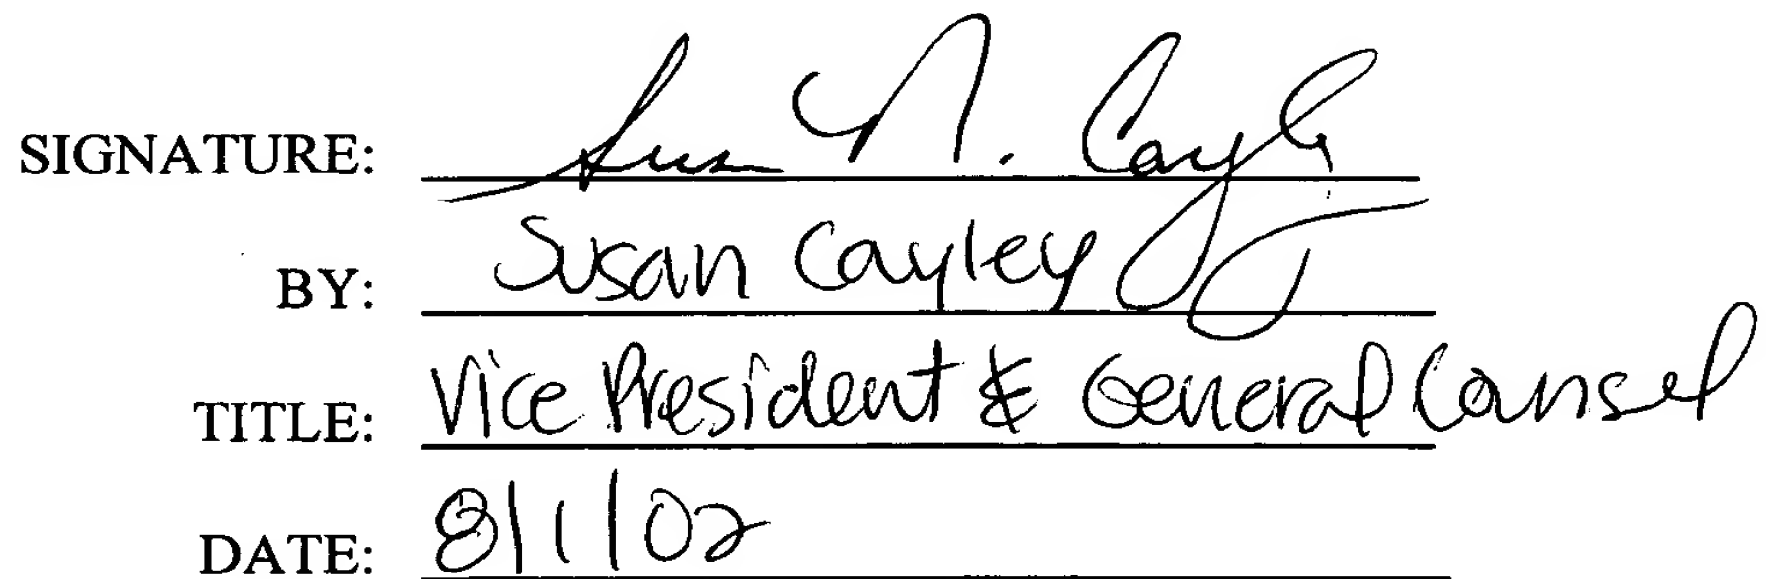 SIGNATURE: Susan N. Cayley
BY: Susan Cayley
TITLE: Vice President & General Counsel
DATE: 8/1/02